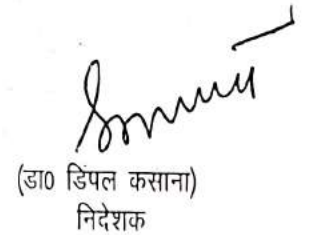 (डा0 डिंपल कसाना)
निदेशक